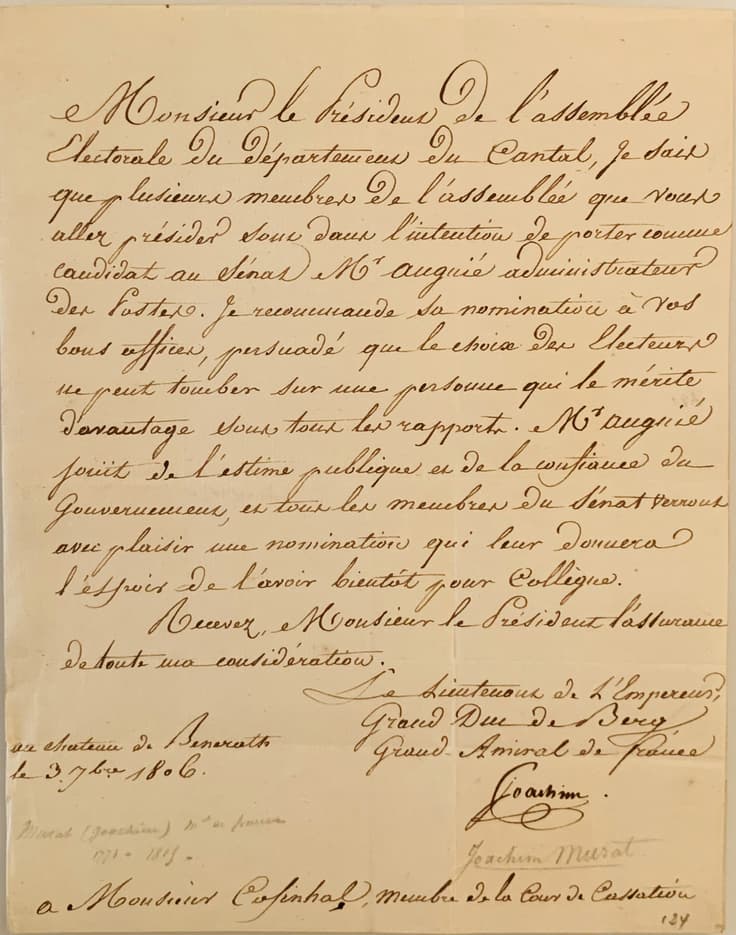 Monsieur le Président de l'assemblée
Electorale du département du Cantal, Je sais
que plusieurs membres de l'assemblée que vous
allez présider sont dans l'intention de porter comme
candidat au Sénat Mr auguié administrateur
des Postes. Je recommande sa nomination à vos
bons offices, persuadé que le choix des Electeurs
ne peut tomber sur une personne qui le mérite
davantage sous tous les rapports. Mr auguié
jouit de l'estime publique et de la confiance du
Gouvernement, et tous les membres du Sénat verront
avec plaisir une nomination qui leur donnera
l'espoir de l'avoir bientôt pour Collègue.
Recevez, Monsieur le Président l'assurance
de toute ma considération.
Le Lieutenant de L'Empereur,
Grand Duc de Berg
Grand Amiral de france
au chateau de Benerath
le 3 7bre 1806.
Joachim.
Murat (Joachim) Mal de france
1771 - 1815.
Joachim Murat
a Monsieur Cofinhal, membre de la Cour de Cassation
124